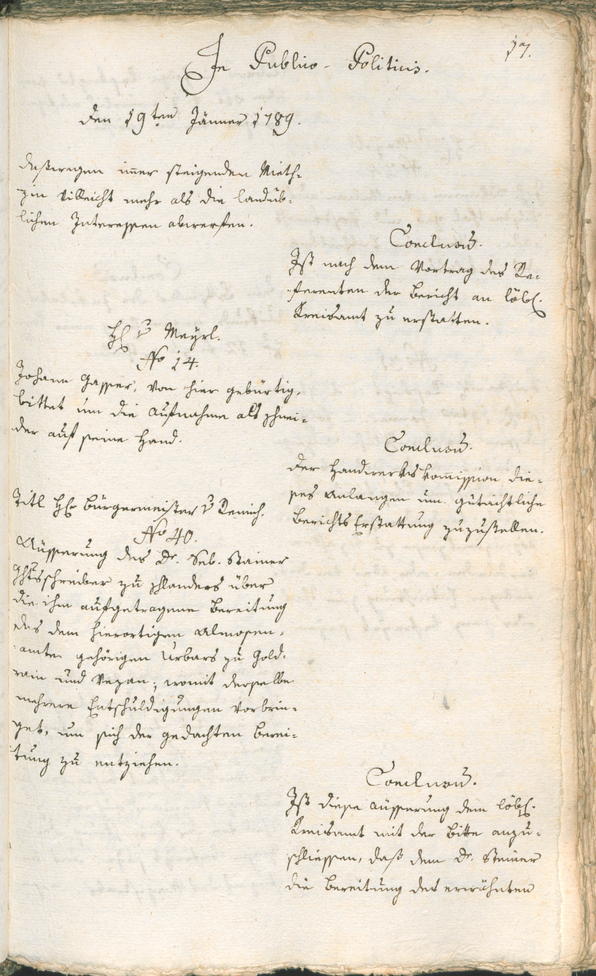 17.
In Publico-Politicis.
den 19ten Jänner 1789.
destwegen imer steigenden Mieth-
zin villeicht mehr als die landüb-
lichen Interessen abwerfen.
Conclusum.
Ist nach dem Vortrag des Re-
ferenten der Bericht an löbl.
Kreisamt zu erstatten.
H. v Meyrl.
No 14.
Johann Gasser, von hier gebürtig,
bittet um die Aufnahme als Schnei-
der auf seine Hand.
Conclusum.
Der Handwerkskommission die-
ses Anlangen um gutächtliche
Berichts Erstattung zuzustellen.
Titl H. Bürgermeister v
No 40.
Äusserung des Dr. Seb. Steiner
zu Schlanders über
die ihm aufgetragene Bereitung
des dem hierortigen Almosen-
amten gehörigen Urbars zu Gold-
rain und Vezan; womit derselbe
mehrere Entschuldigungen vorbrin-
get, um sich der gedachten Berei-
tung zu entziehen.
Conclusum.
Ist diese Äusserung dem löbl.
Kreisamt mit der Bitte anzu-
schliessen, daß dem Dr. Steiner
die Bereitung des erwähnten